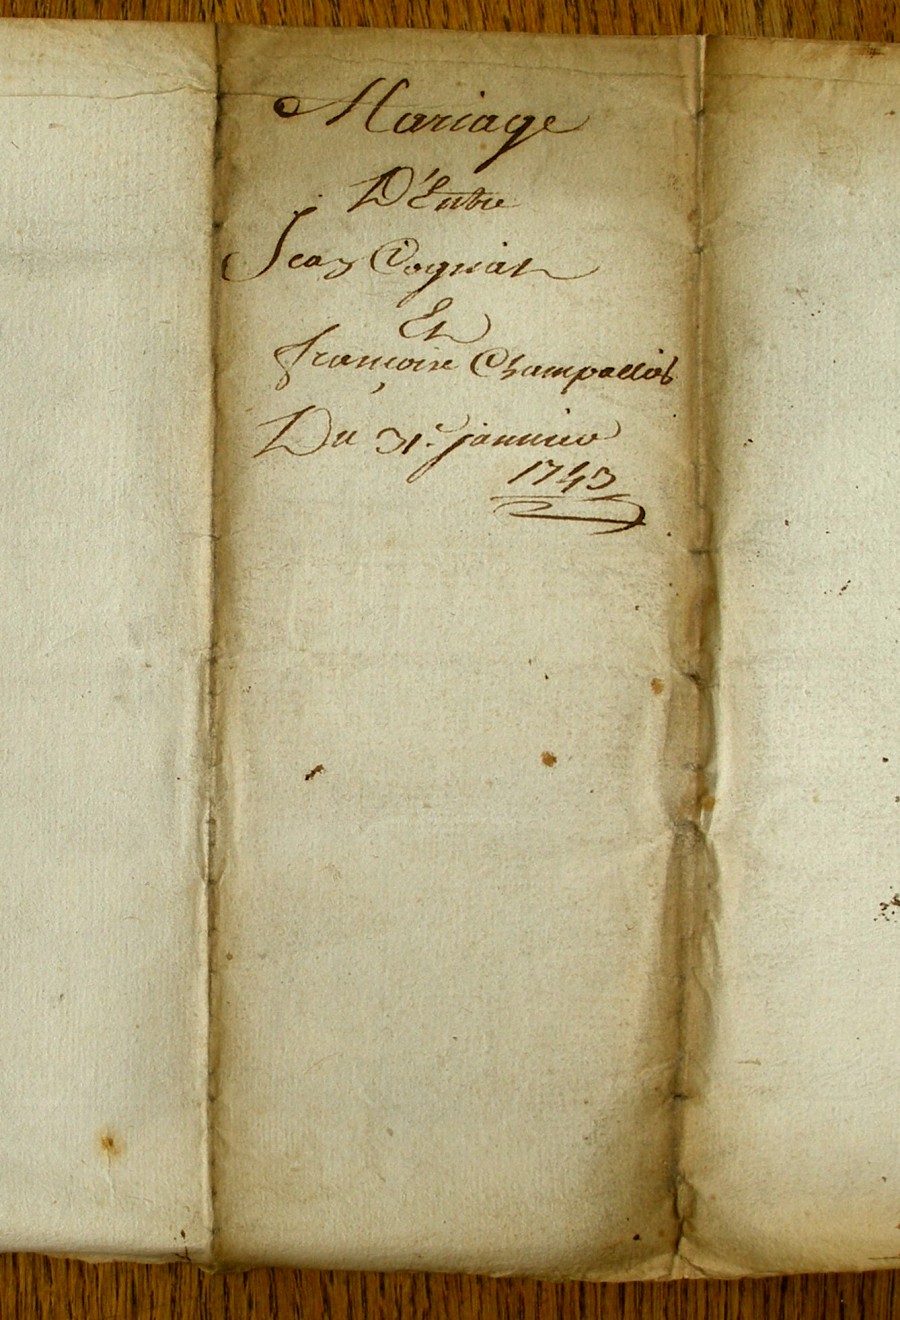 Mariage
D'Entre
Jean Cogniat
Et
françoise Champallié
Du 31.e janvier
1743